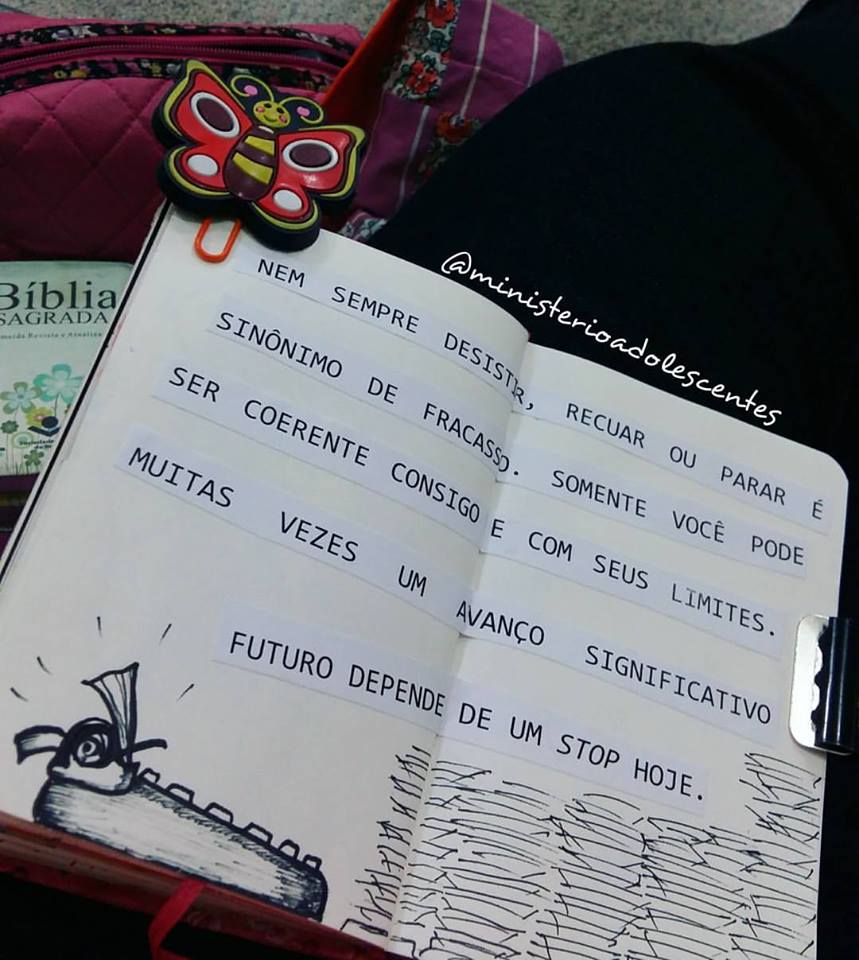 Bíblia
SAGRADA
@ministerioadolescentes
NEM SEMPRE DESISTIR, RECUAR OU PARAR É
SINÔNIMO DE FRACASSO. SOMENTE VOCÊ PODE
SER COERENTE CONSIGO E COM SEUS LIMITES.
MUITAS VEZES UM AVANÇO SIGNIFICATIVO
FUTURO DEPENDE DE UM STOP HOJE.